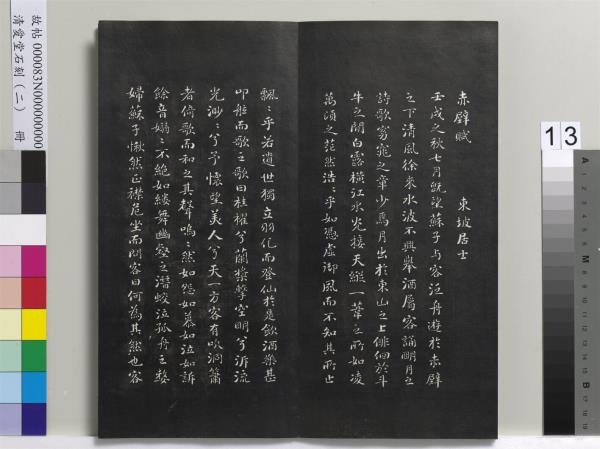 赤壁賦　東坡居士
壬戌之秋七月既望蘇子与客泛舟遊於赤壁
之下清風徐來水波不興舉酒屬客誦明月之
詩歌窈窕之章少焉月出於東山之上徘徊於斗
牛之間白露橫江水光接天縱一葦之所如凌
萬頃之茫然浩々乎如憑虛御風而不知其所止
飄々乎若遺世獨立羽化而登仙於是飲酒樂甚
叩舷而歌之歌曰桂櫂兮蘭槳擊空明兮泝流
光渺々兮予懷望美人兮天一方客有吹洞簫
者倚歌而和之其聲嗚々然如怨如慕如泣如訴
餘音嫋々不絕如縷舞幽壑之潛蛟泣孤舟之嫠
婦蘇子愀然正襟危坐而問客曰何為其然也客
故帖 000083N000000000
清愛堂石刻（二） 冊
13
A
M
B